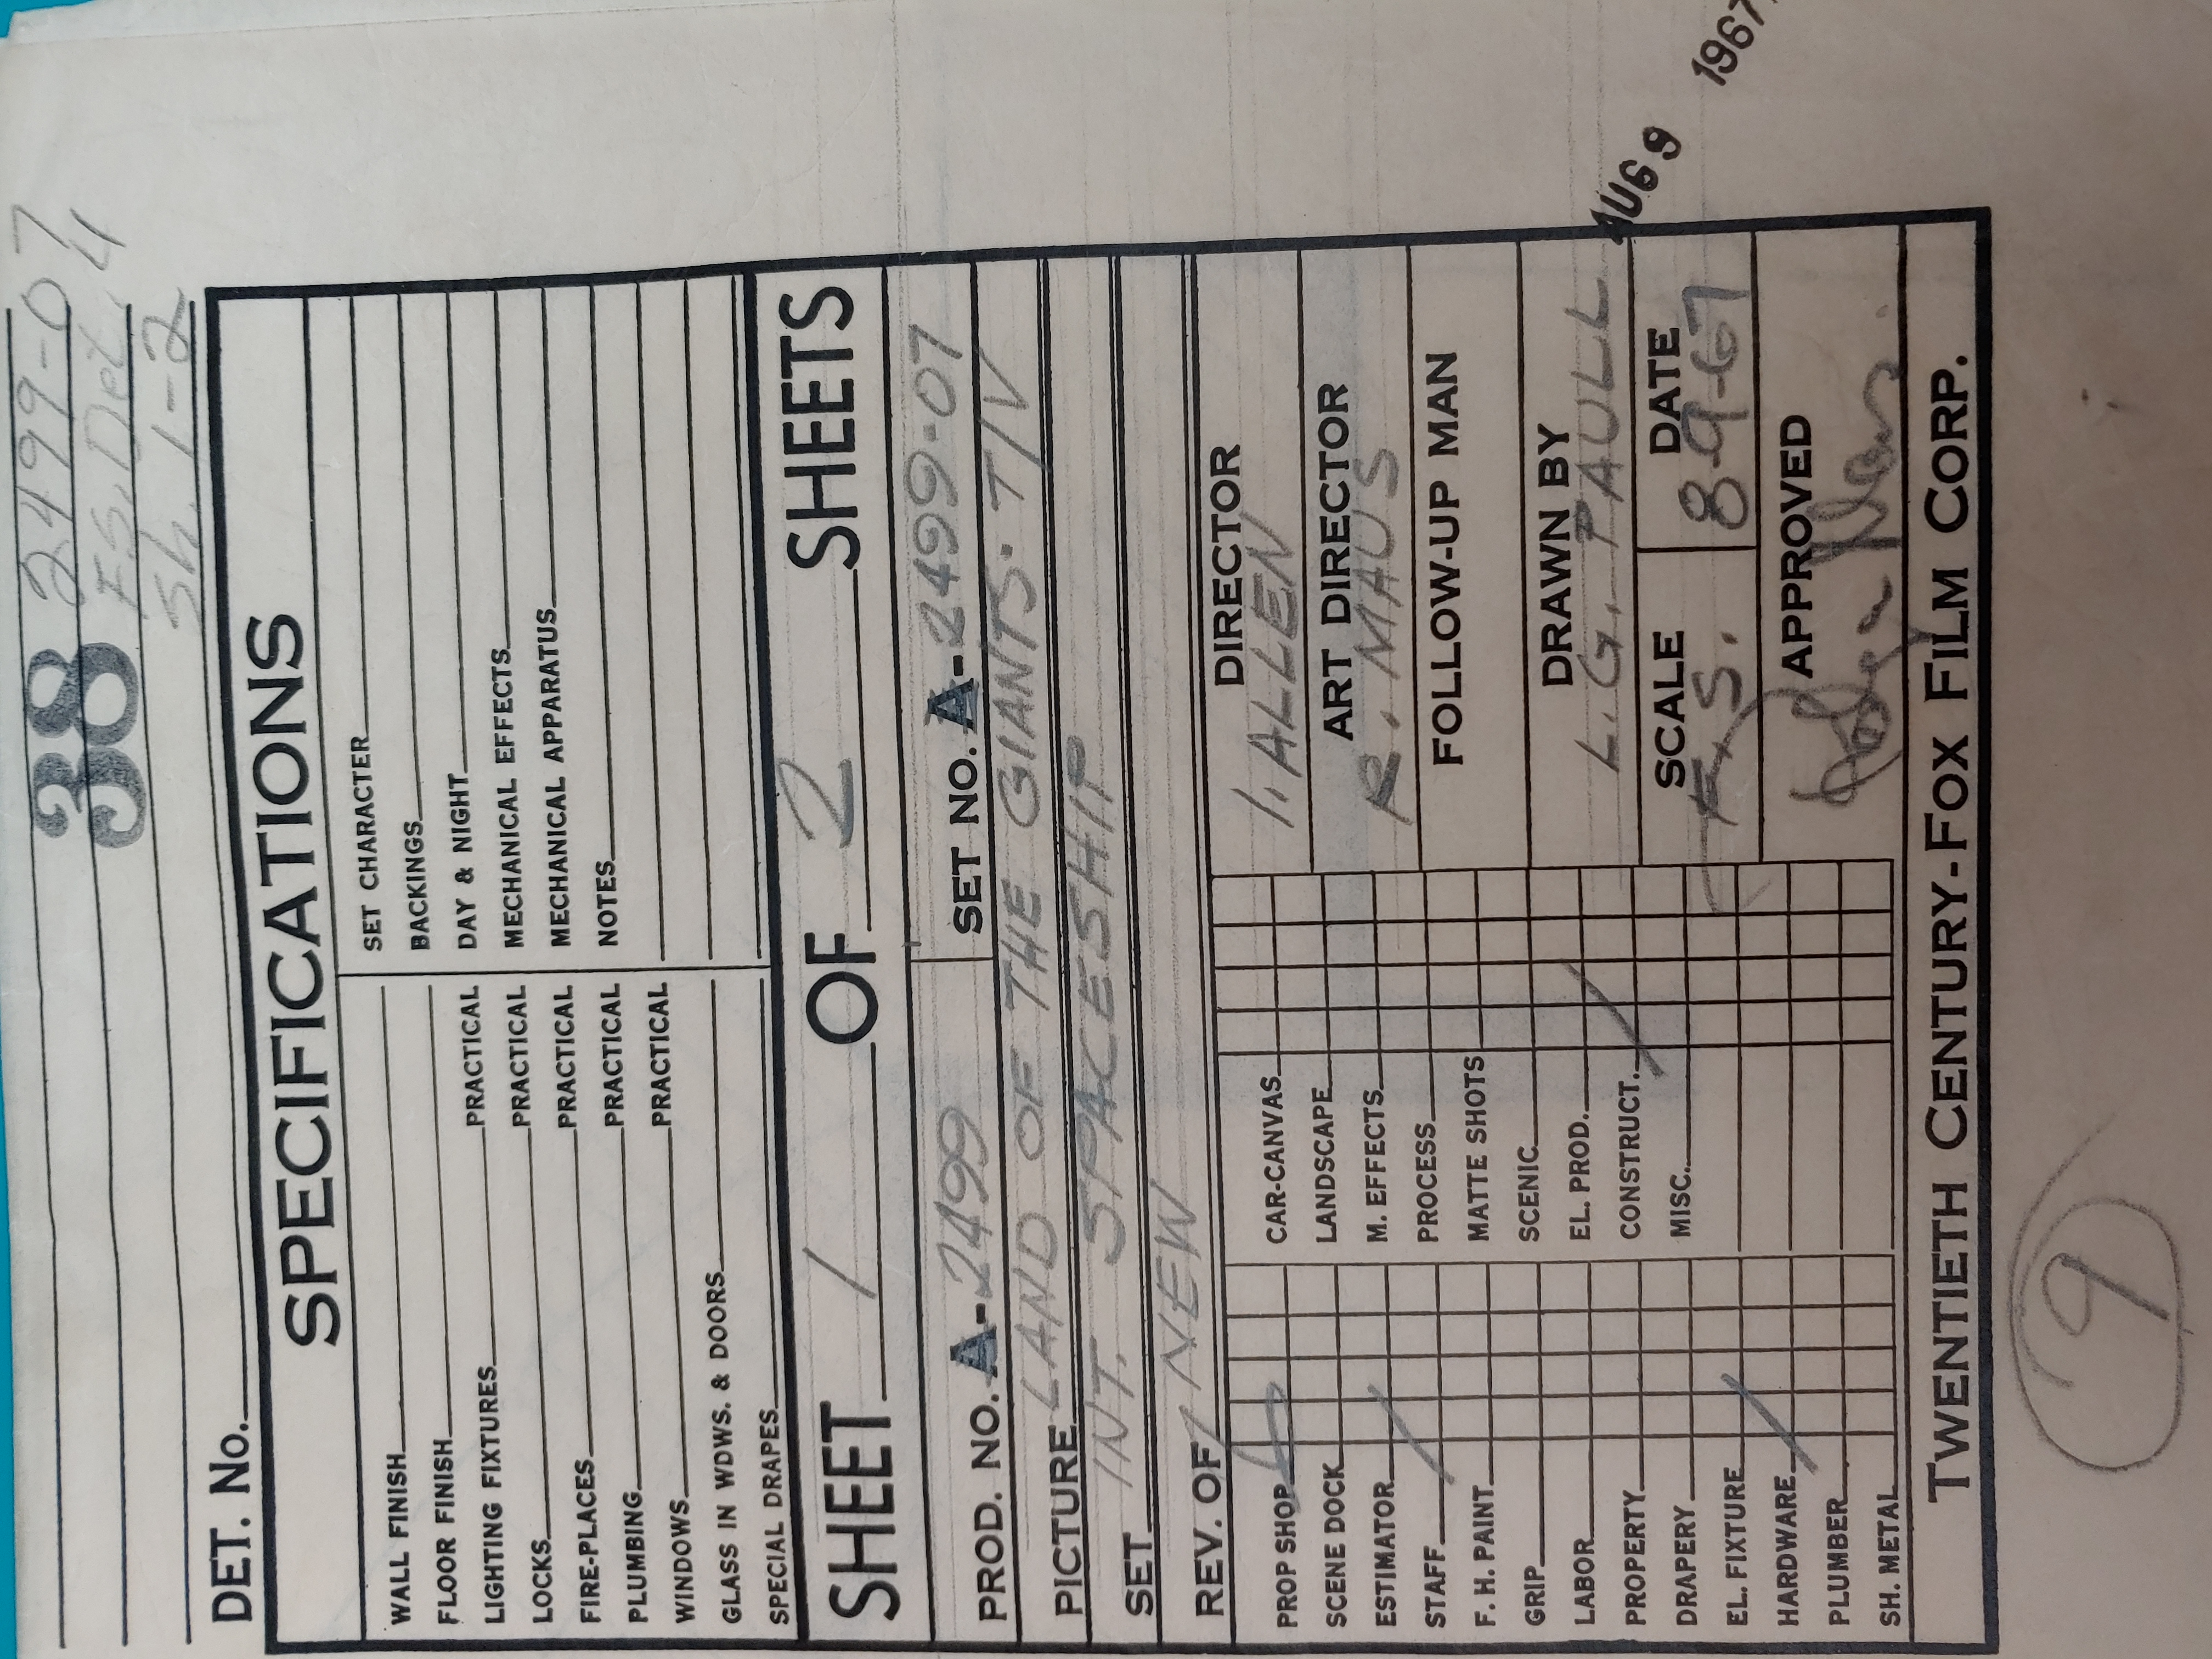 38 2499-07
F.S. Det. 4
Sh. 1-2
DET. NO.
SPECIFICATIONS
WALL FINISH
FLOOR FINISH
LIGHTING FIXTURES PRACTICAL
LOCKS PRACTICAL
FIRE-PLACES PRACTICAL
PLUMBING PRACTICAL
WINDOWS PRACTICAL
GLASS IN WDWS. & DOORS
SPECIAL DRAPES
SET CHARACTER
BACKINGS
DAY & NIGHT
MECHANICAL EFFECTS
MECHANICAL APPARATUS
NOTES
SHEET 1 OF 2 SHEETS
PROD. NO. A-2499 SET NO. A-2499-07
PICTURE LAND OF THE GIANTS · T/V
SET INT. SPACESHIP
REV. OF NEW
PROP SHOP
SCENE DOCK
ESTIMATOR
STAFF
F. H. PAINT
GRIP
LABOR
PROPERTY
DRAPERY
EL. FIXTURE
HARDWARE
PLUMBER
SH. METAL
CAR-CANVAS
LANDSCAPE
M. EFFECTS
PROCESS
MATTE SHOTS
SCENIC
EL. PROD.
CONSTRUCT.
MISC.
DIRECTOR
I. ALLEN
ART DIRECTOR
R. MAUS
FOLLOW-UP MAN
DRAWN BY
L. G. PAULL
SCALE DATE
F.S. 8-9-67
APPROVED
TWENTIETH CENTURY-FOX FILM CORP.
AUG 9 1967
9